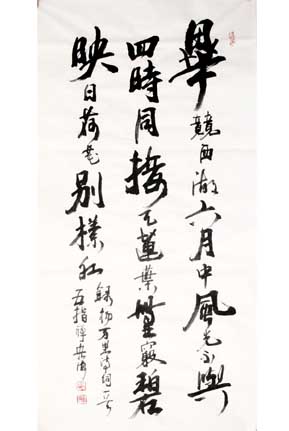 畢競西湖六月中風光不與
四時同接天蓮葉無窮碧
映日荷花別樣紅
錄楊万里詩詞一首
五指禪